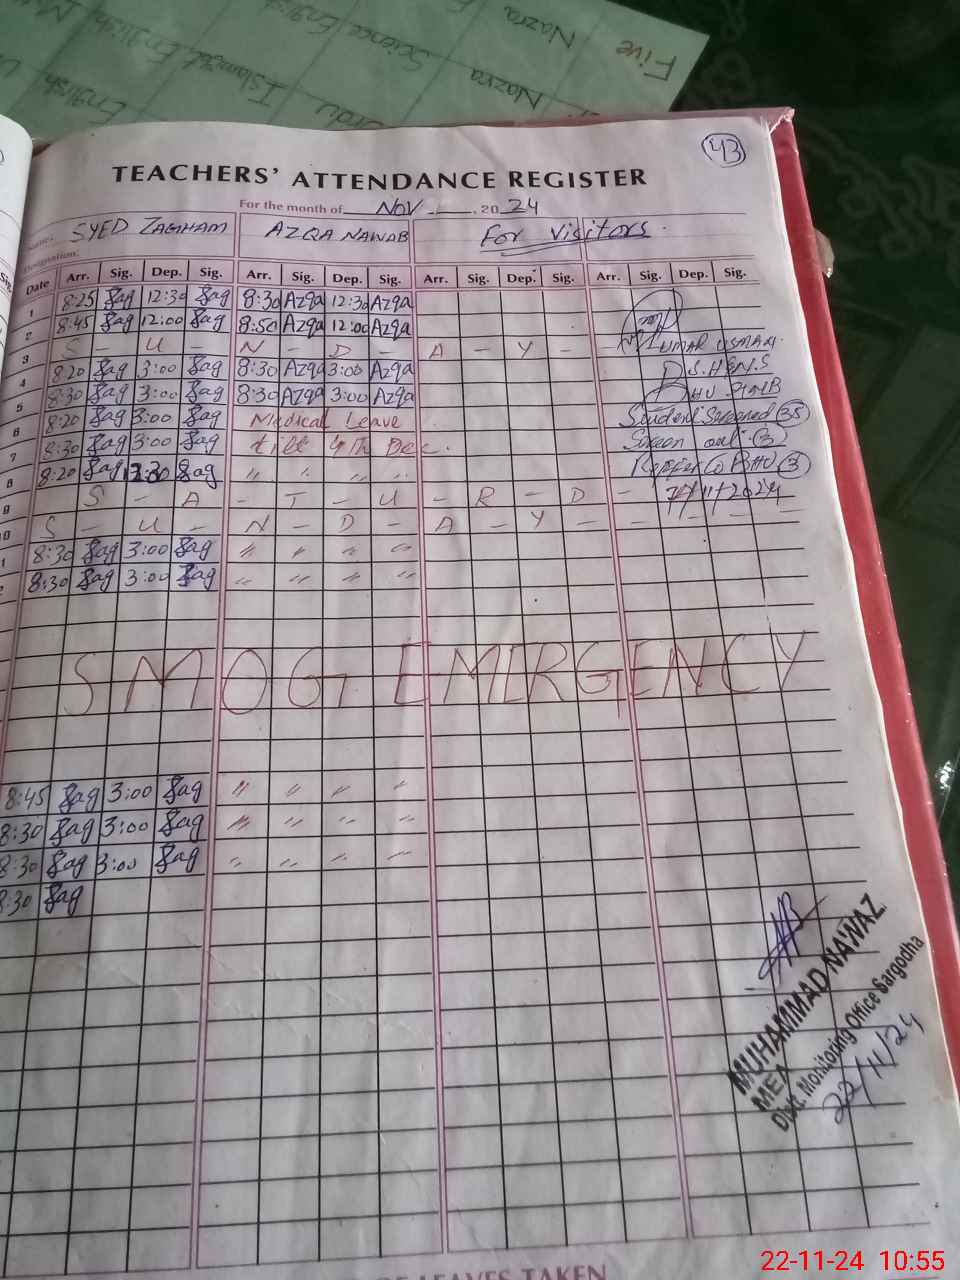 Five Nazra Science English
Nazra Urdu Islamiat English
43
TEACHERS' ATTENDANCE REGISTER
For the month of Nov 20 24
Name: SYED ZAGHAM AZQA NAWAB For Visitors.
Designation:
Date Arr. Sig. Dep. Sig. Arr. Sig. Dep. Sig. Arr. Sig. Dep. Sig. Arr. Sig. Dep. Sig.
1 8:25 Zag 12:30 Zag 8:30 Azqa 12:30 Azqa
2 8:45 Zag 12:00 Zag 8:50 Azqa 12:00 Azqa
3 S - U - N - D - A - Y - UMAR USMAN
4 8:20 Zag 3:00 Zag 8:30 Azqa 3:00 Azqa
5 8:30 Zag 3:00 Zag 8:30 Azqa 3:00 Azqa
6 8:20 Zag 3:00 Zag Medical Leave Student Screened 35
7 8:30 Zag 3:00 Zag till 4th Dec. Screen out (3)
8 8:20 Zag 12:30 Zag " " " " Reffer to BHU 3
9 S - A - T - U - R - D - 7/11/2024
10 S - U - N - D - A - Y - - - - -
8:30 Zag 3:00 Zag " " " "
8:30 Zag 3:00 Zag " " " "
SMOG EMERGENCY
8:45 Zag 3:00 Zag " " " "
8:30 Zag 3:00 Zag " " " "
8:30 Zag 3:00 Zag " " " "
8:30 Zag
MUHAMMAD NAWAZ
MEA
Distt. Monitoring Office Sargodha
22/11/24
OF LEAVES TAKEN
22-11-24 10:55